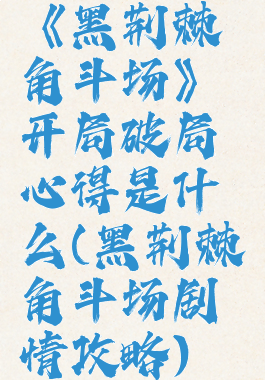 《黑荆棘
角斗场》
开局破局
心得是什
么(黑荆棘
角斗场剧
情攻略)